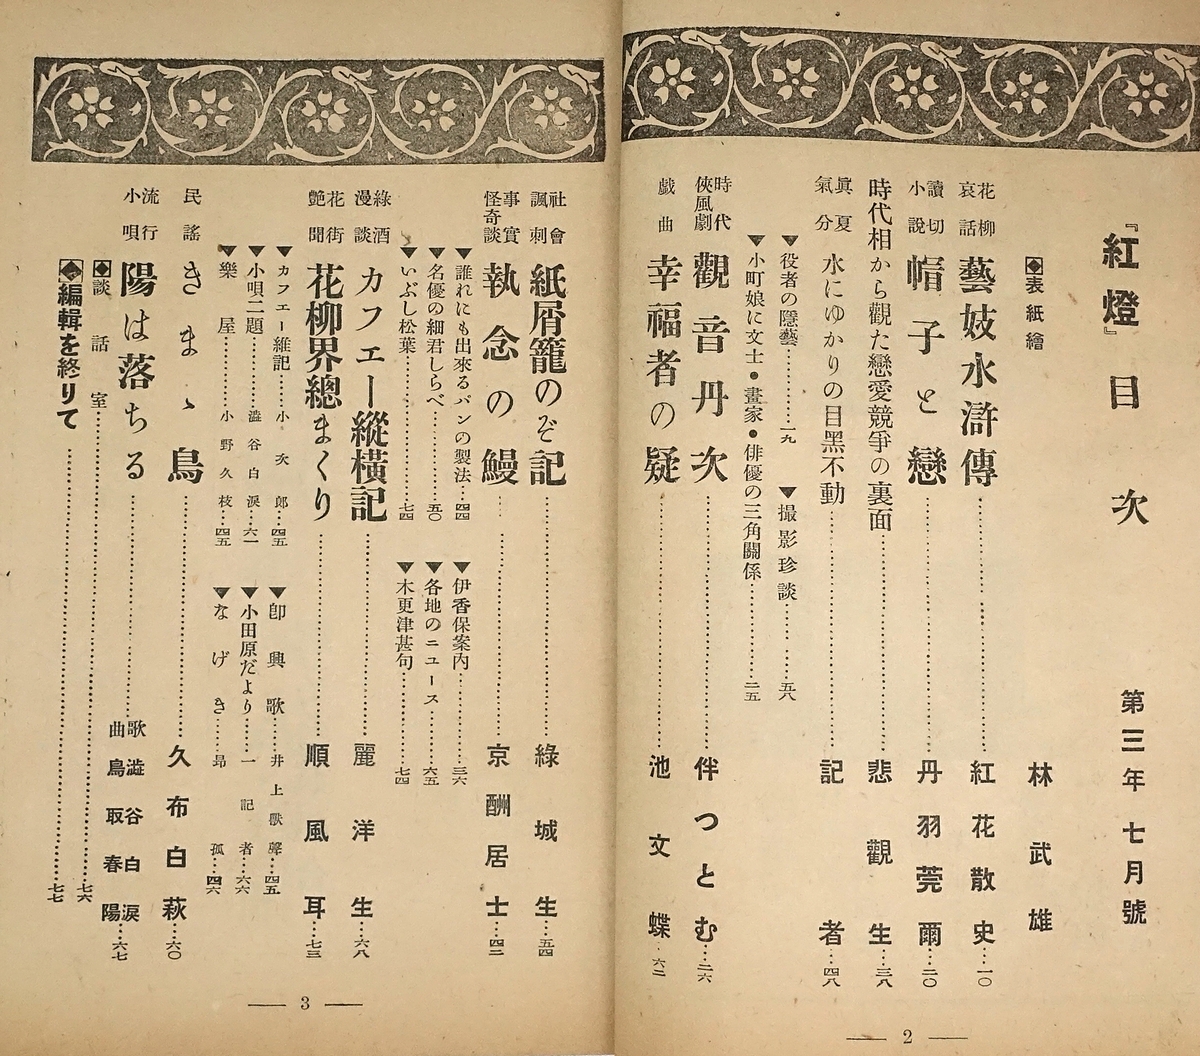 『紅燈』目次 第三年七月號
◆表紙繪 林武雄
花柳哀話 藝妓水滸傳……紅花散史…一〇
讀切小說 帽子と戀……丹羽莞爾…二〇
時代相から觀た戀愛競爭の裏面……悲觀生…三八
眞夏氣分 水にゆかりの目黑不動……記者…四八
▼役者の隱藝……一九 ▼撮影珍談……五八
▼小町娘に文士・畫家・俳優の三角關係……二五
時代俠風劇 觀音丹次……伴つとむ…二六
戯曲 幸福者の疑……池文蝶…六二
2
社會諷刺 紙屑籠のぞ記……綠城生…五四
事實怪奇談 執念の鰻……京酬居士…四二
▼誰れにも出來るパンの製法…四四 ▼伊香保案内……三六
▼名優の細君しらべ……五〇 ▼各地のニュース……六五
▼いぶし松葉……七四 ▼木更津甚句……七四
綠酒漫談 カフエー縱橫記……麗洋生…六八
花街艶聞 花柳界總まくり……順風耳…七三
▼カフエー維記……小次郎…四五 ▼卽興歌…井上獸聲…四五
▼小唄二題……澁谷白淚…六一 ▼小田原だより……一記者…六六
▼樂屋……小野久枝…四五 ▼なげき…昻孤…四六
民謠 きまゝ鳥……久布白萩…六〇
流行小唄 陽は落ちる……歌 澁谷白淚 曲 鳥取春陽…六七
◆談話室……七六
◆編輯を終りて……七七
3